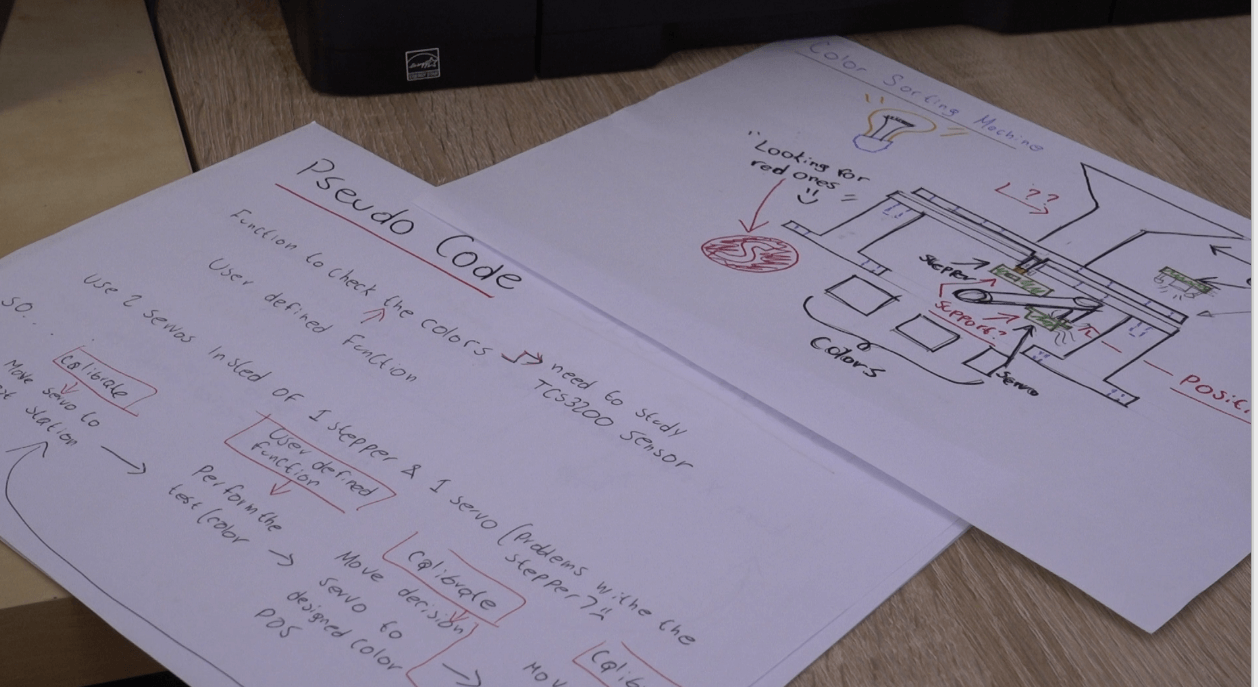 Pseudo Code
Function to check the colors → need to study
TCS3200 sensor
User defined Function
Use 2 servos Insted OF 1 stepper & 1 servo (problems withe the
stepper?)
SO...
Calibrate
Move servo to
station
User defined
function
Perform the
test/color
Calibrate
Move decision
servo to
designed color
POS
Color Sorting Machine
"Looking for
red ones"
L??
Stepper
Support?
Colors
Servo